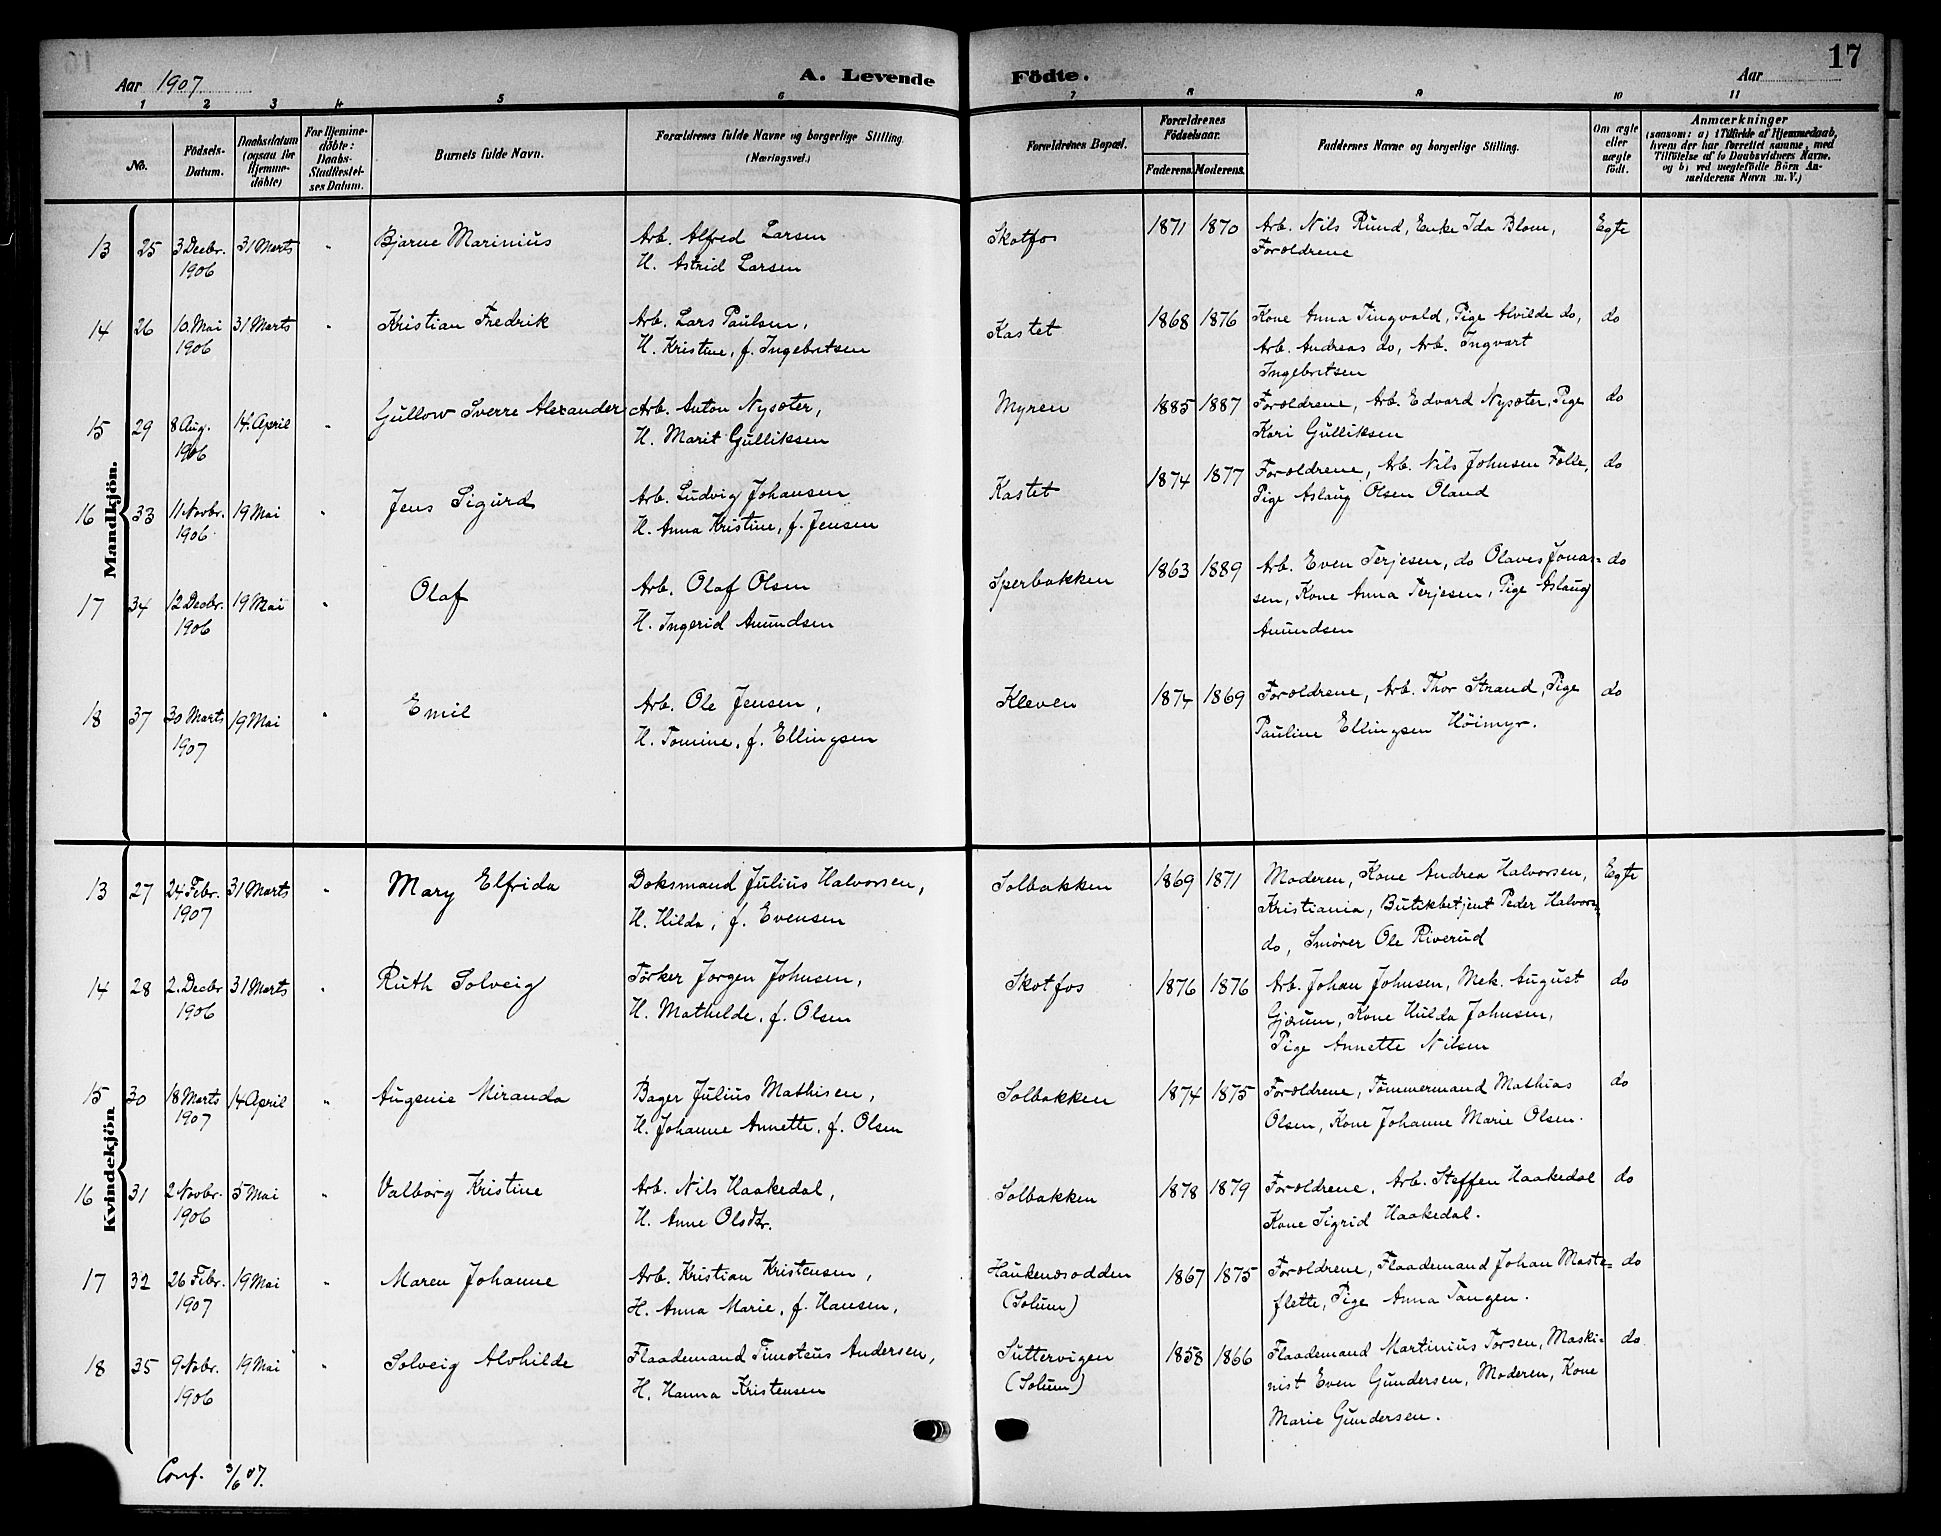 Aar 1907
A. Levende Födte.
Aar
17
1 2 3 4 5 6 7 8 9 10 11
No.
Födsels-Datum.
Daabsdatum (ogsaa for Hjemmedöbte)
For Hjemmedöbte: Daabs-Stadfæstelses Datum.
Barnets fulde Navn.
Forældrenes fulde Navne og borgerlige Stilling. (Næringsvei.)
Forældrenes Bopæl.
Forældrenes Födselsaar.
Faderens. Moderens.
Faddernes Navne og borgerlige Stilling.
Om ægte eller uægte födt.
Anmærkninger
(saasom: a) i Tilfælde af Hjemmedaab, hvem der har forrettet samme, med Tilföielse af to Daabsvidners Navne, og b) ved uægtefödte Börn Anmelderens Navn m. V.)
Mandkjön.
13 25 3 Decbr. 1906 31 Marts " Bjarne Marinius
Arb. Alfred Larsen
H. Astrid Larsen
Skotfos 1871 1870
Arb. Nils Rund, Enke Ida Blom,
Forældrene
Egte
14 26 10. Mai 1906 31 Marts " Kristian Fredrik
Arb. Lars Paulsen,
H. Kristine, f. Ingebretsen
Kastet 1868 1876
Kone Anna Tingvald, Pige Alvilde do,
Arb. Andreas do, Arb. Ingvart
Ingebretsen
do
15 29 8 Aug. 1906 14. April " Gullow Sverre Alexander
Arb. Anton Nysæter,
H. Marit Gulliksen
Myren 1885 1887
Forældrene, Arb. Edvard Nysæter, Pige
Kari Gulliksen
do
16 33 11 Novbr. 1906 19 Mai " Jens Sigurd
Arb. Ludvig Johansen
H. Anna Kristine, f. Jensen
Kastet 1874 1877
Forældrene, Arb. Nils Johnsen Folke,
Pige Aslaug Olsen Oland
do
17 34 12 Decbr. 1906 19 Mai " Olaf
Arb. Olaf Olsen
H. Ingerid Amundsen
Sperbakken 1863 1889
Arb. Even Terjesen, do Olaves Jona-
sen, Kone Anna Terjesen, Pige Aslaug
Amundsen
do
18 37 30 Marts 1907 19 Mai " Emil
Arb. Ole Jensen,
H. Tomine, f. Ellingsen
Kleven 1874 1869
Forældrene, Arb. Thor Strand, Pige
Pauline Ellingsen Höimyr.
do
Kvindekjön
13 27 24 Febr. 1907 31 Marts " Mary Elfrida
Doksmand Julius Halvorsen,
H. Hilda, f. Evensen
Solbakken 1869 1871
Moderen, Kone Andrea Halvorsen,
Kristiania, Butikbetjent Peder Halvors.,
do, Smörer Ole Riverud
Egte
14 28 2. Decbr 1906 31 Marts " Ruth Solveig
Törker Jørgen Johnsen,
H. Mathilde, f. Olsen
Skotfos 1876 1876
Arb. Johan Johnsen, Mek. August
Gjærum, Kone Hulda Johnsen,
Pige Annette Nilsen
do
15 30 18 Marts 1907 14 April " Augenie Miranda
Bager Julius Mathisen,
H. Johanne Annette, f. Olsen
Solbakken 1874 1875
Forældrene, Tömmermand Mathias
Olsen, Kone Johanne Marie Olsen.
do
16 31 2 Novbr. 1906 5 Mai " Valborg Kristine
Arb. Nils Haakedal,
H. Anne Olsdtr.
Solbakken 1878 1879
Forældrene, Arb. Steffen Haakedal
Kone Sigrid Haakedal.
do
17 32 26 Febr. 1907 19 Mai " Maren Johanne
Arb. Kristian Kristensen,
H. Anna Marie, f. Hansen,
Haukenæsodden
(Solum)
1867 1875
Forældrene, Flaademand Johan Maste-
flette, Pige Anna Tangen.
do
18 35 9 Nobr. 1906 19 Mai " Solveig Alvhilde
Flaademand Timoteus Andersen,
H. Hanna Kristensen
Suttervigen
(Solum)
1858 1866
Flaademand Martinius Torsen, Maski-
nist Even Gundersen, Moderen, Kone
Marie Gundersen.
do
Conf. 3/6 07.